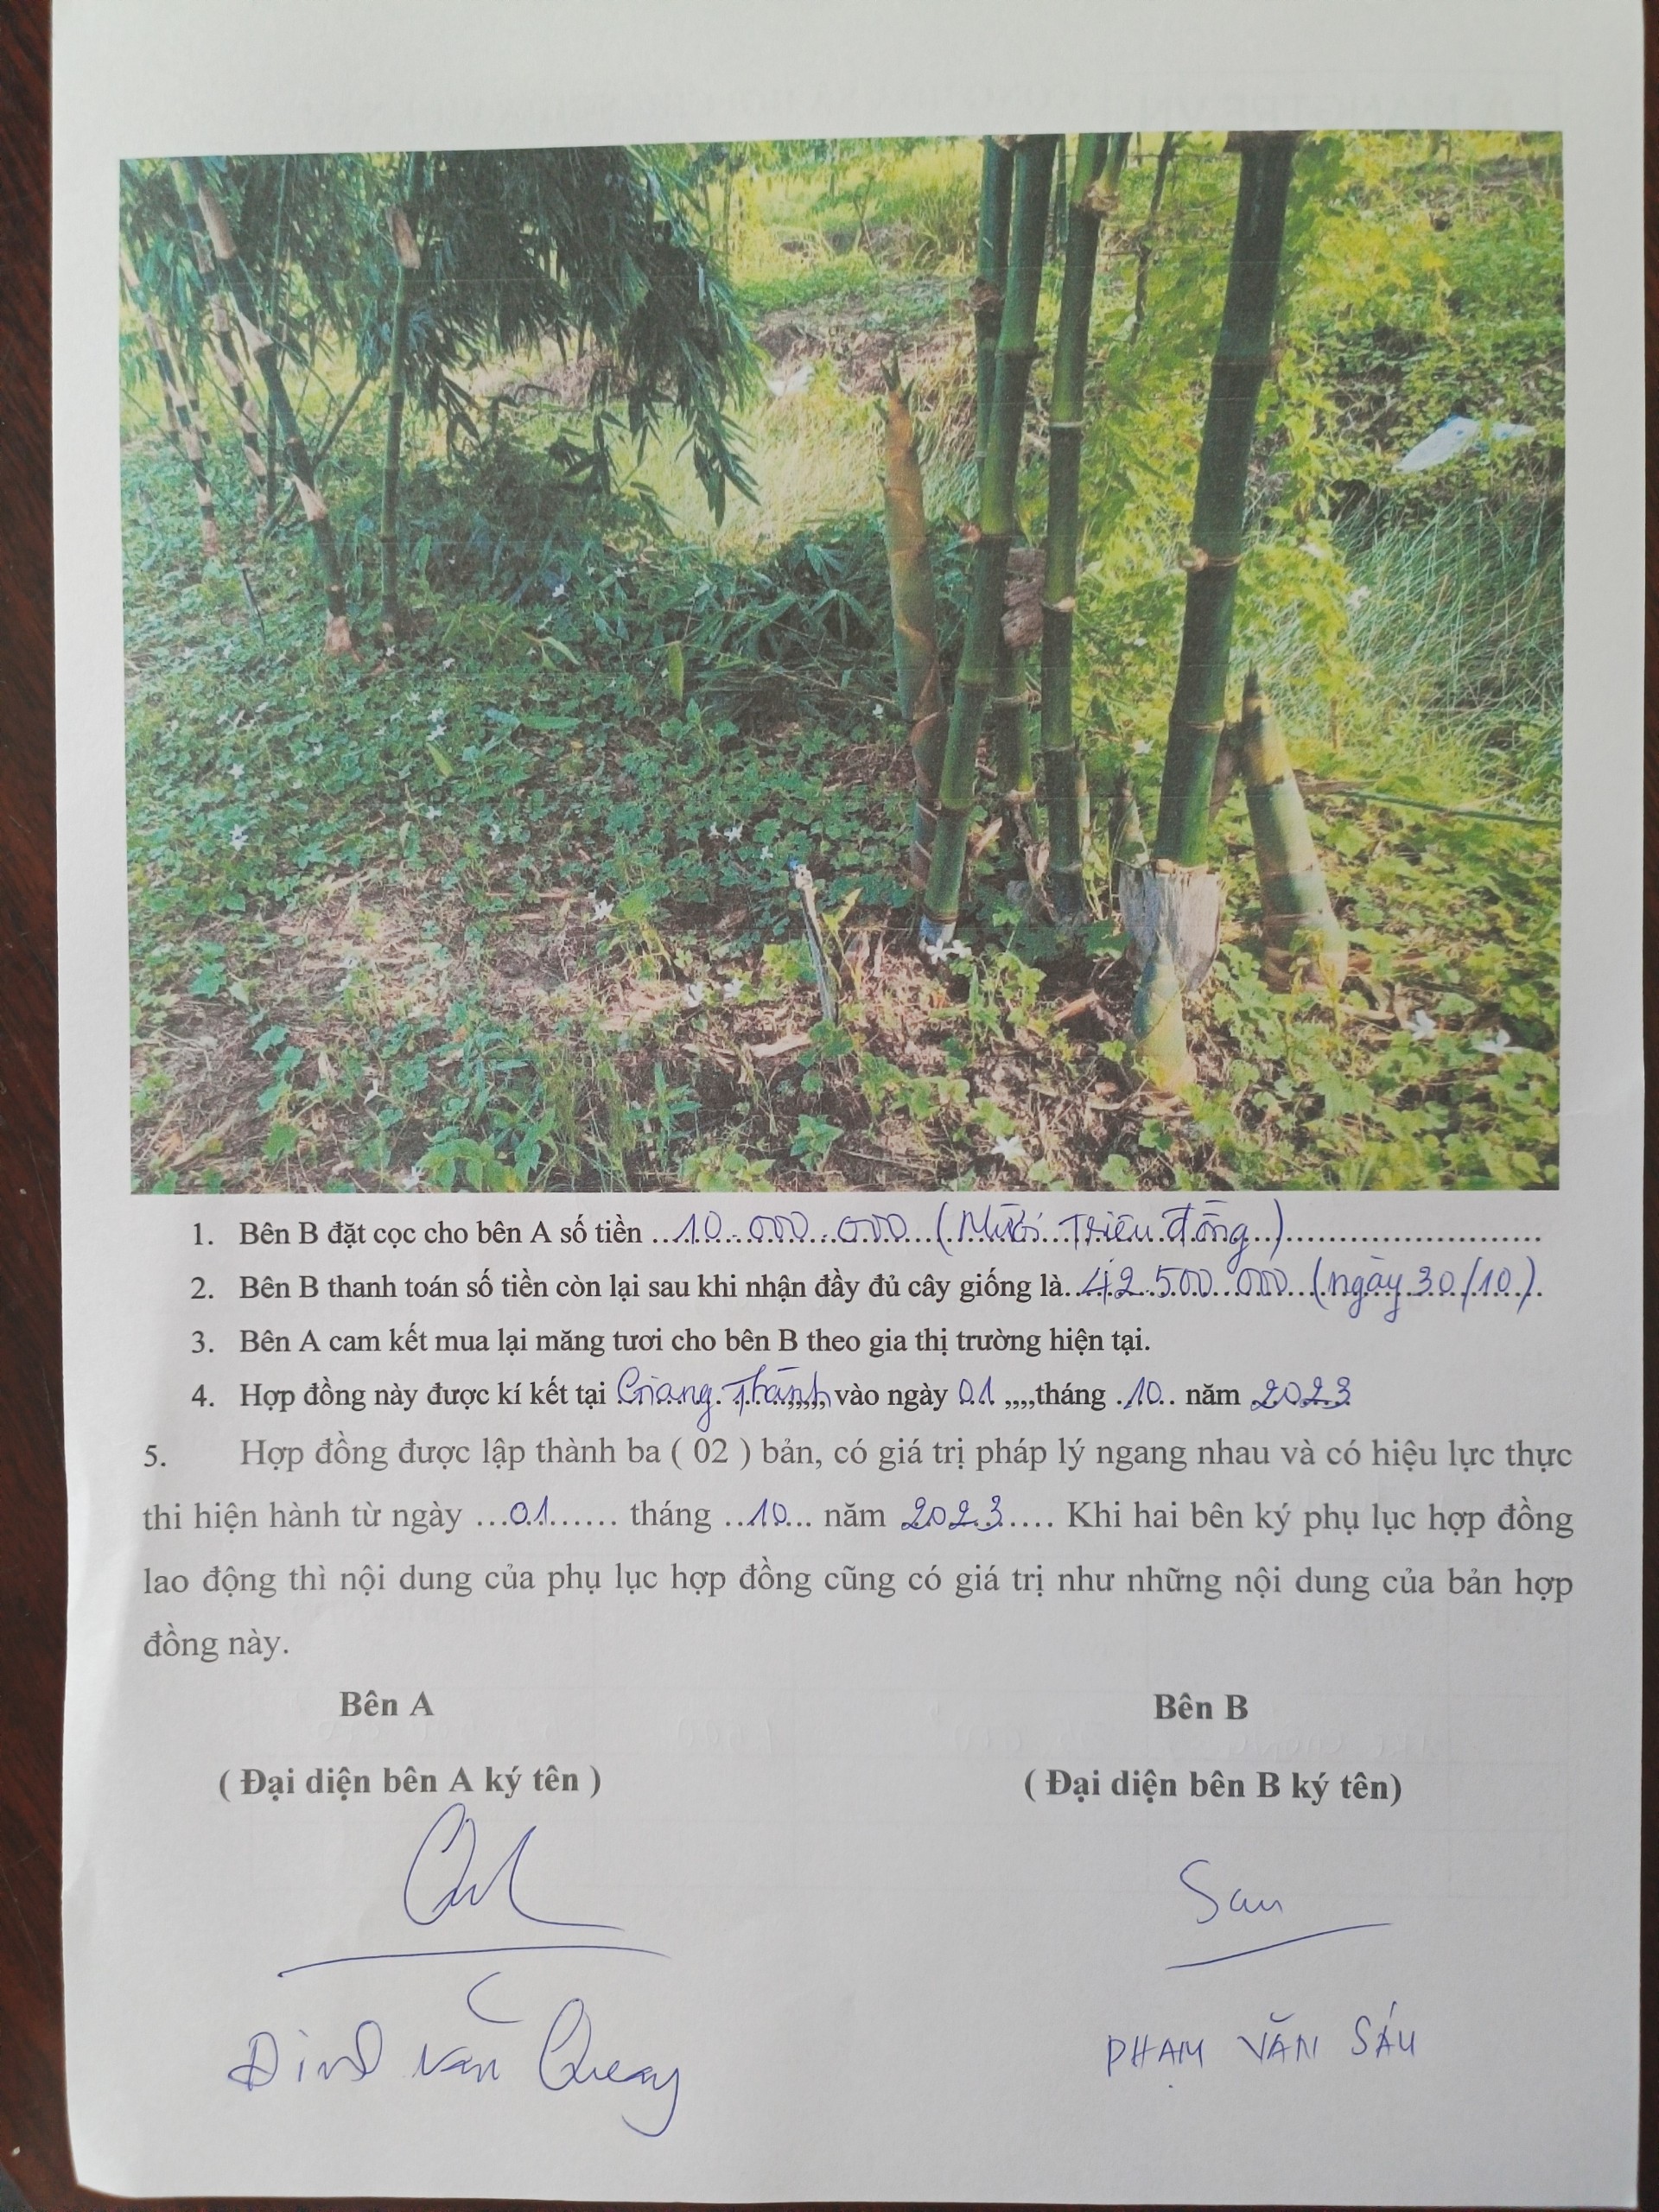 1. Bên B đặt cọc cho bên A số tiền ...10.000.000 (Mười Triệu đồng)..........................
2. Bên B thanh toán số tiền còn lại sau khi nhận đầy đủ cây giống là..42.500.000...(ngày 30/10).
3. Bên A cam kết mua lại măng tươi cho bên B theo gia thị trường hiện tại.
4. Hợp đồng này được kí kết tại Giang Thành,,,,, vào ngày 01 ,,,,tháng .10.. năm 2023
5. Hợp đồng được lập thành ba ( 02 ) bản, có giá trị pháp lý ngang nhau và có hiệu lực thực
thi hiện hành từ ngày ...01...... tháng ..10... năm 2023.... Khi hai bên ký phụ lục hợp đồng
lao động thì nội dung của phụ lục hợp đồng cũng có giá trị như những nội dung của bản hợp
đồng này.
Bên A Bên B
( Đại diện bên A ký tên ) ( Đại diện bên B ký tên)
Sau
Đinh Văn PHẠM VĂN SÁU